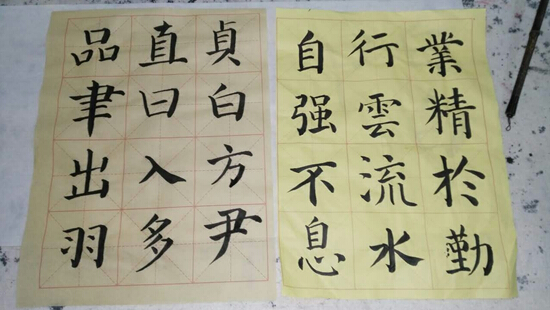 業精於勤
行雲流水
自强不息
貞白方尹
直曰入多
品聿出羽